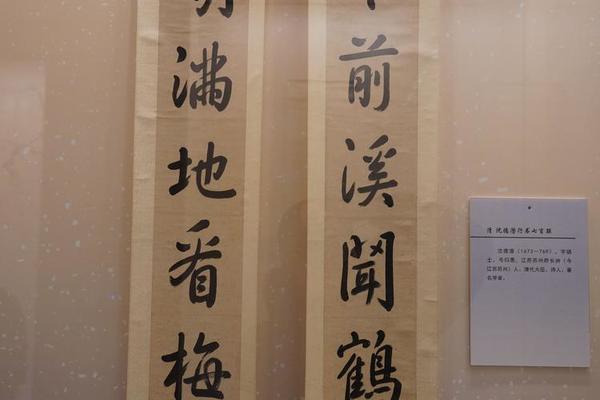 前溪聞鶴
滿地看梅
清 沈德潜行书七言联
沈德潜（1673—769），字确
士，号归愚，江苏苏州府长洲（今
江苏苏州）人，清代大臣，诗人，著
名学者。